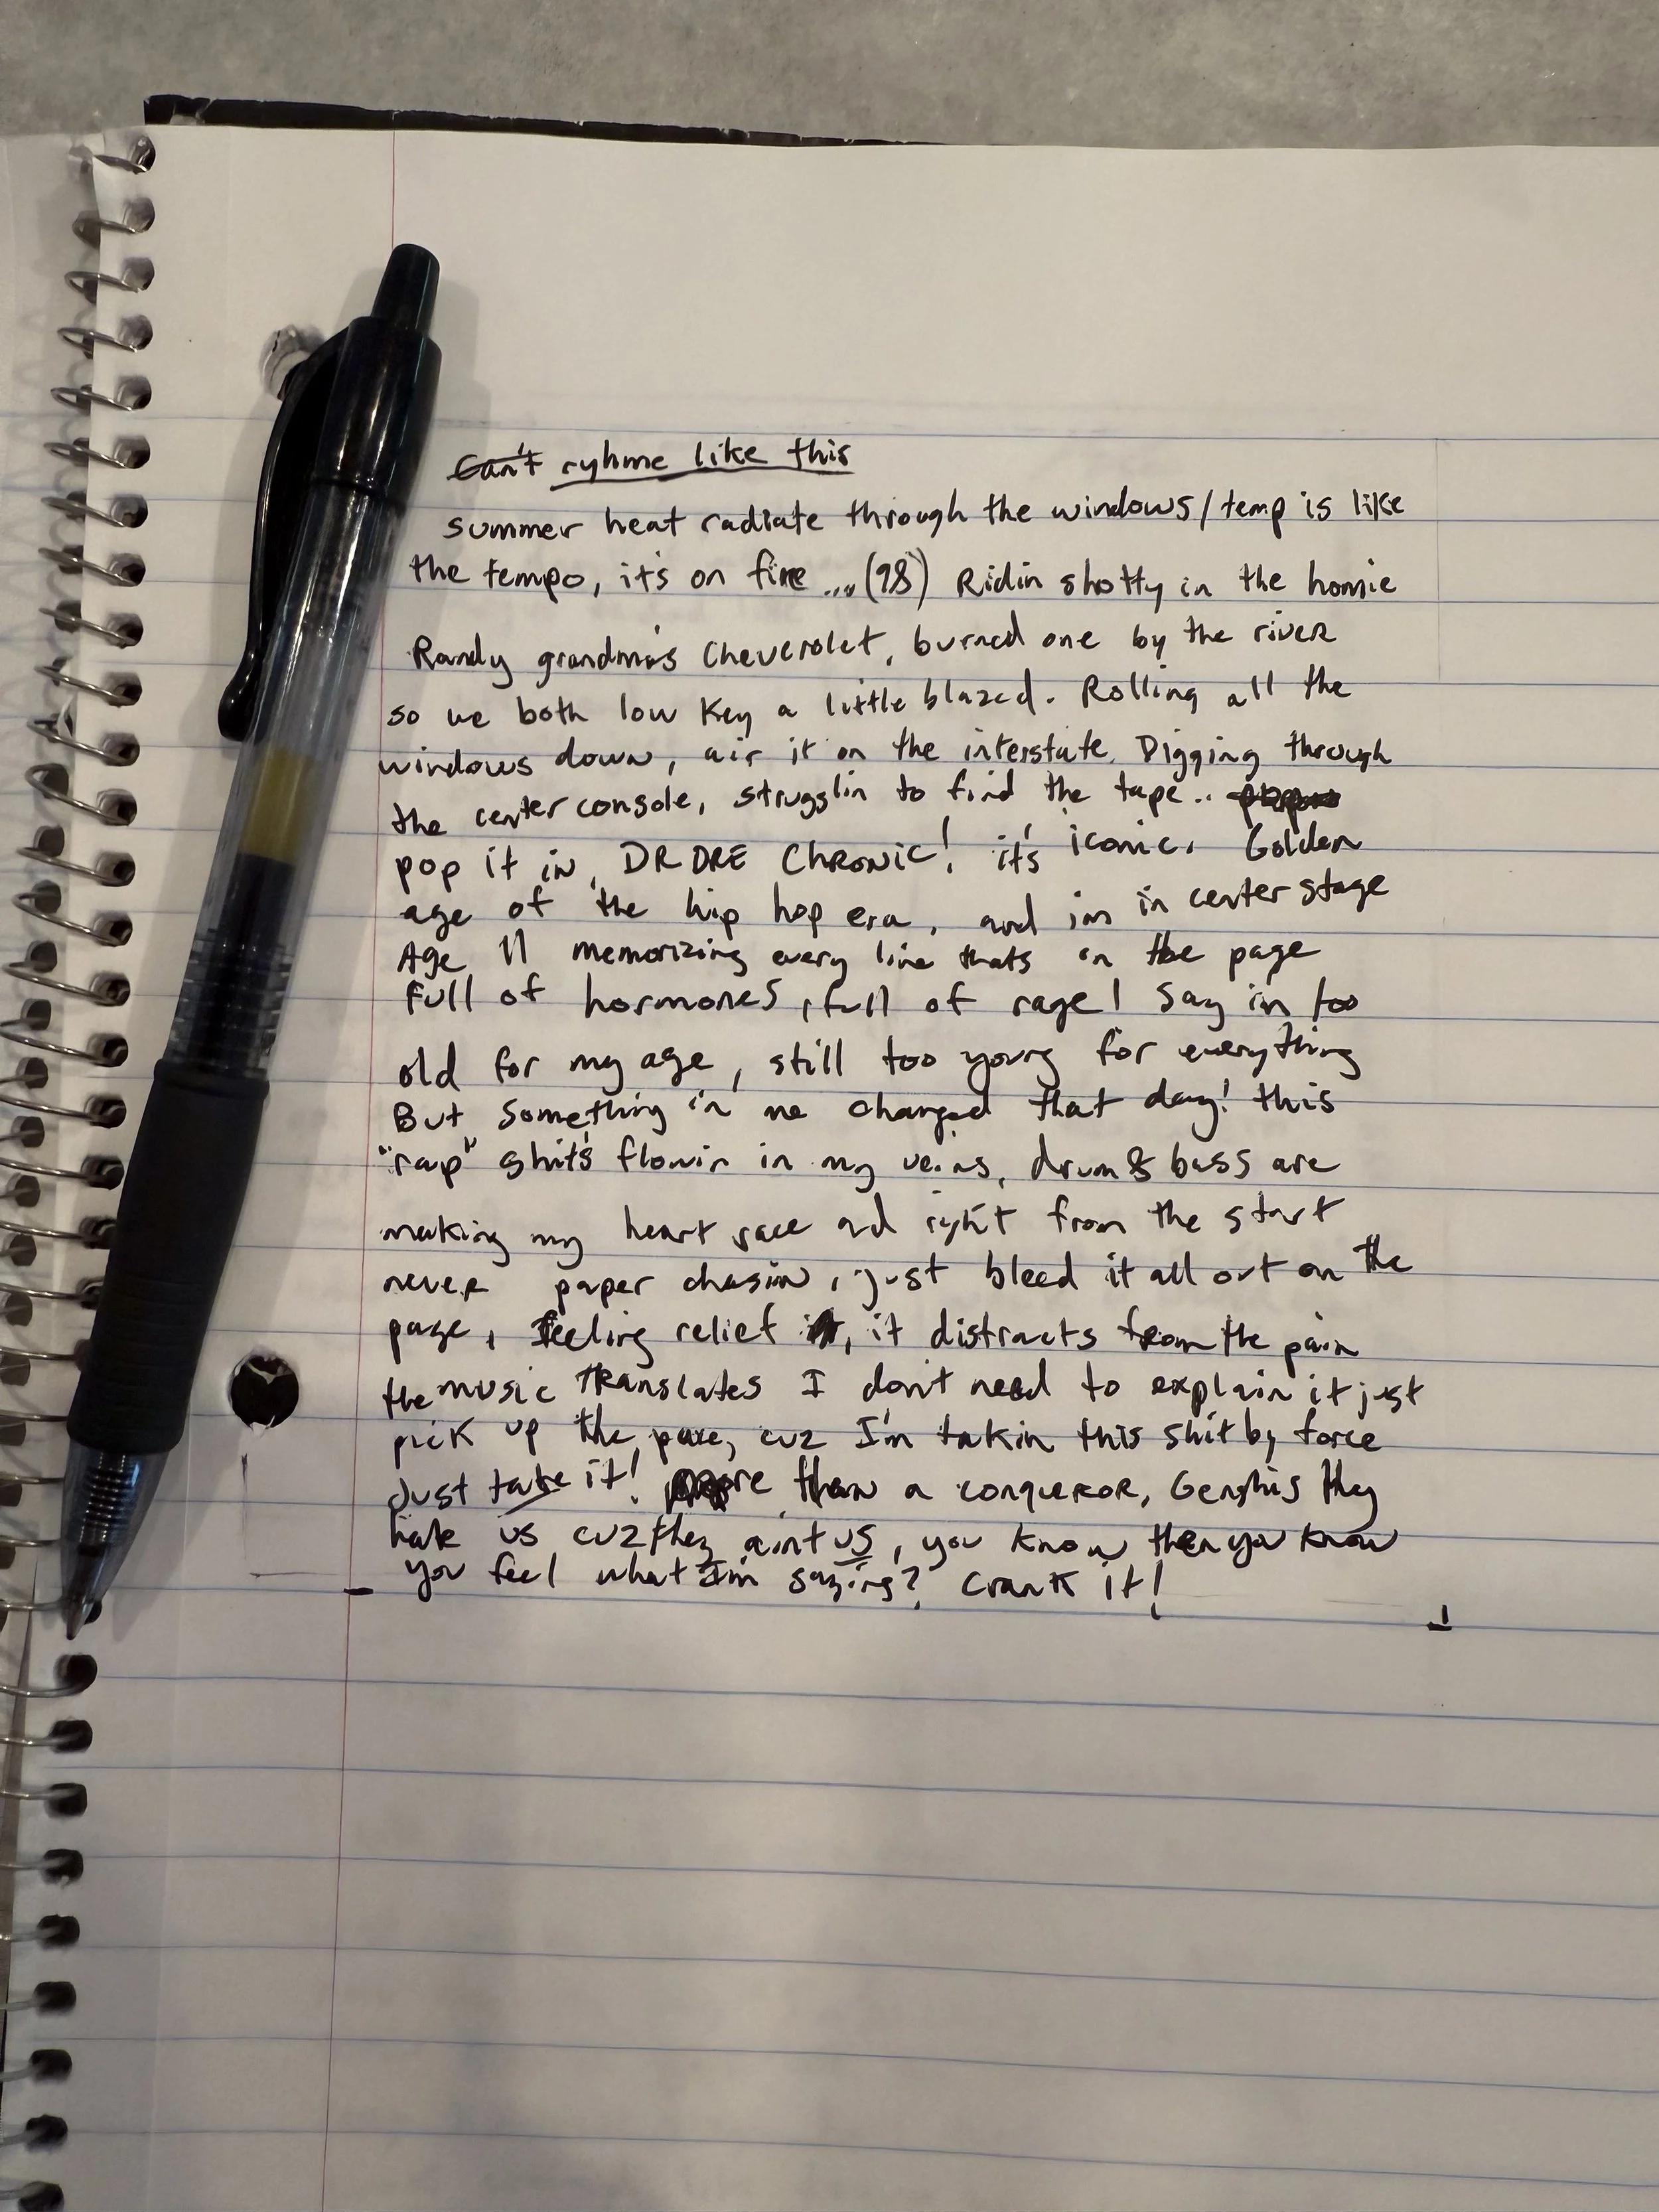 Can't ryhme like this
summer heat radiate through the windows/temp is like
the tempo, it's on fire ...(98) Ridin shotty in the homie
Randy grandma's Cheverolet, burned one by the river
so we both low key a little blazed. Rolling all the
windows down, air it on the interstate. Digging through
the center console, strugglin to find the tape..
pop it in, DR DRE CHRONIC! it's iconic. Golden
age of the hip hop era, and im in center stage
Age 11 memorizing every line thats on the page
full of hormones, full of rage! Say im too
old for my age, still too young for everything
But something in me changed that day! this
"rap" shit's flowin in my veins, drum & bass are
making my heart race and right from the start
never paper chasin, just bleed it all out on the
page, feeling relief, it distracts from the pain
the music TRanslates I don't need to explain it just
pick up the pace, cuz I'm takin this shit by force
Just take it! more than a conqueror, Genghis they
hate us cuz they aint us, you know then you know
you feel what I'm saying? Crank it!